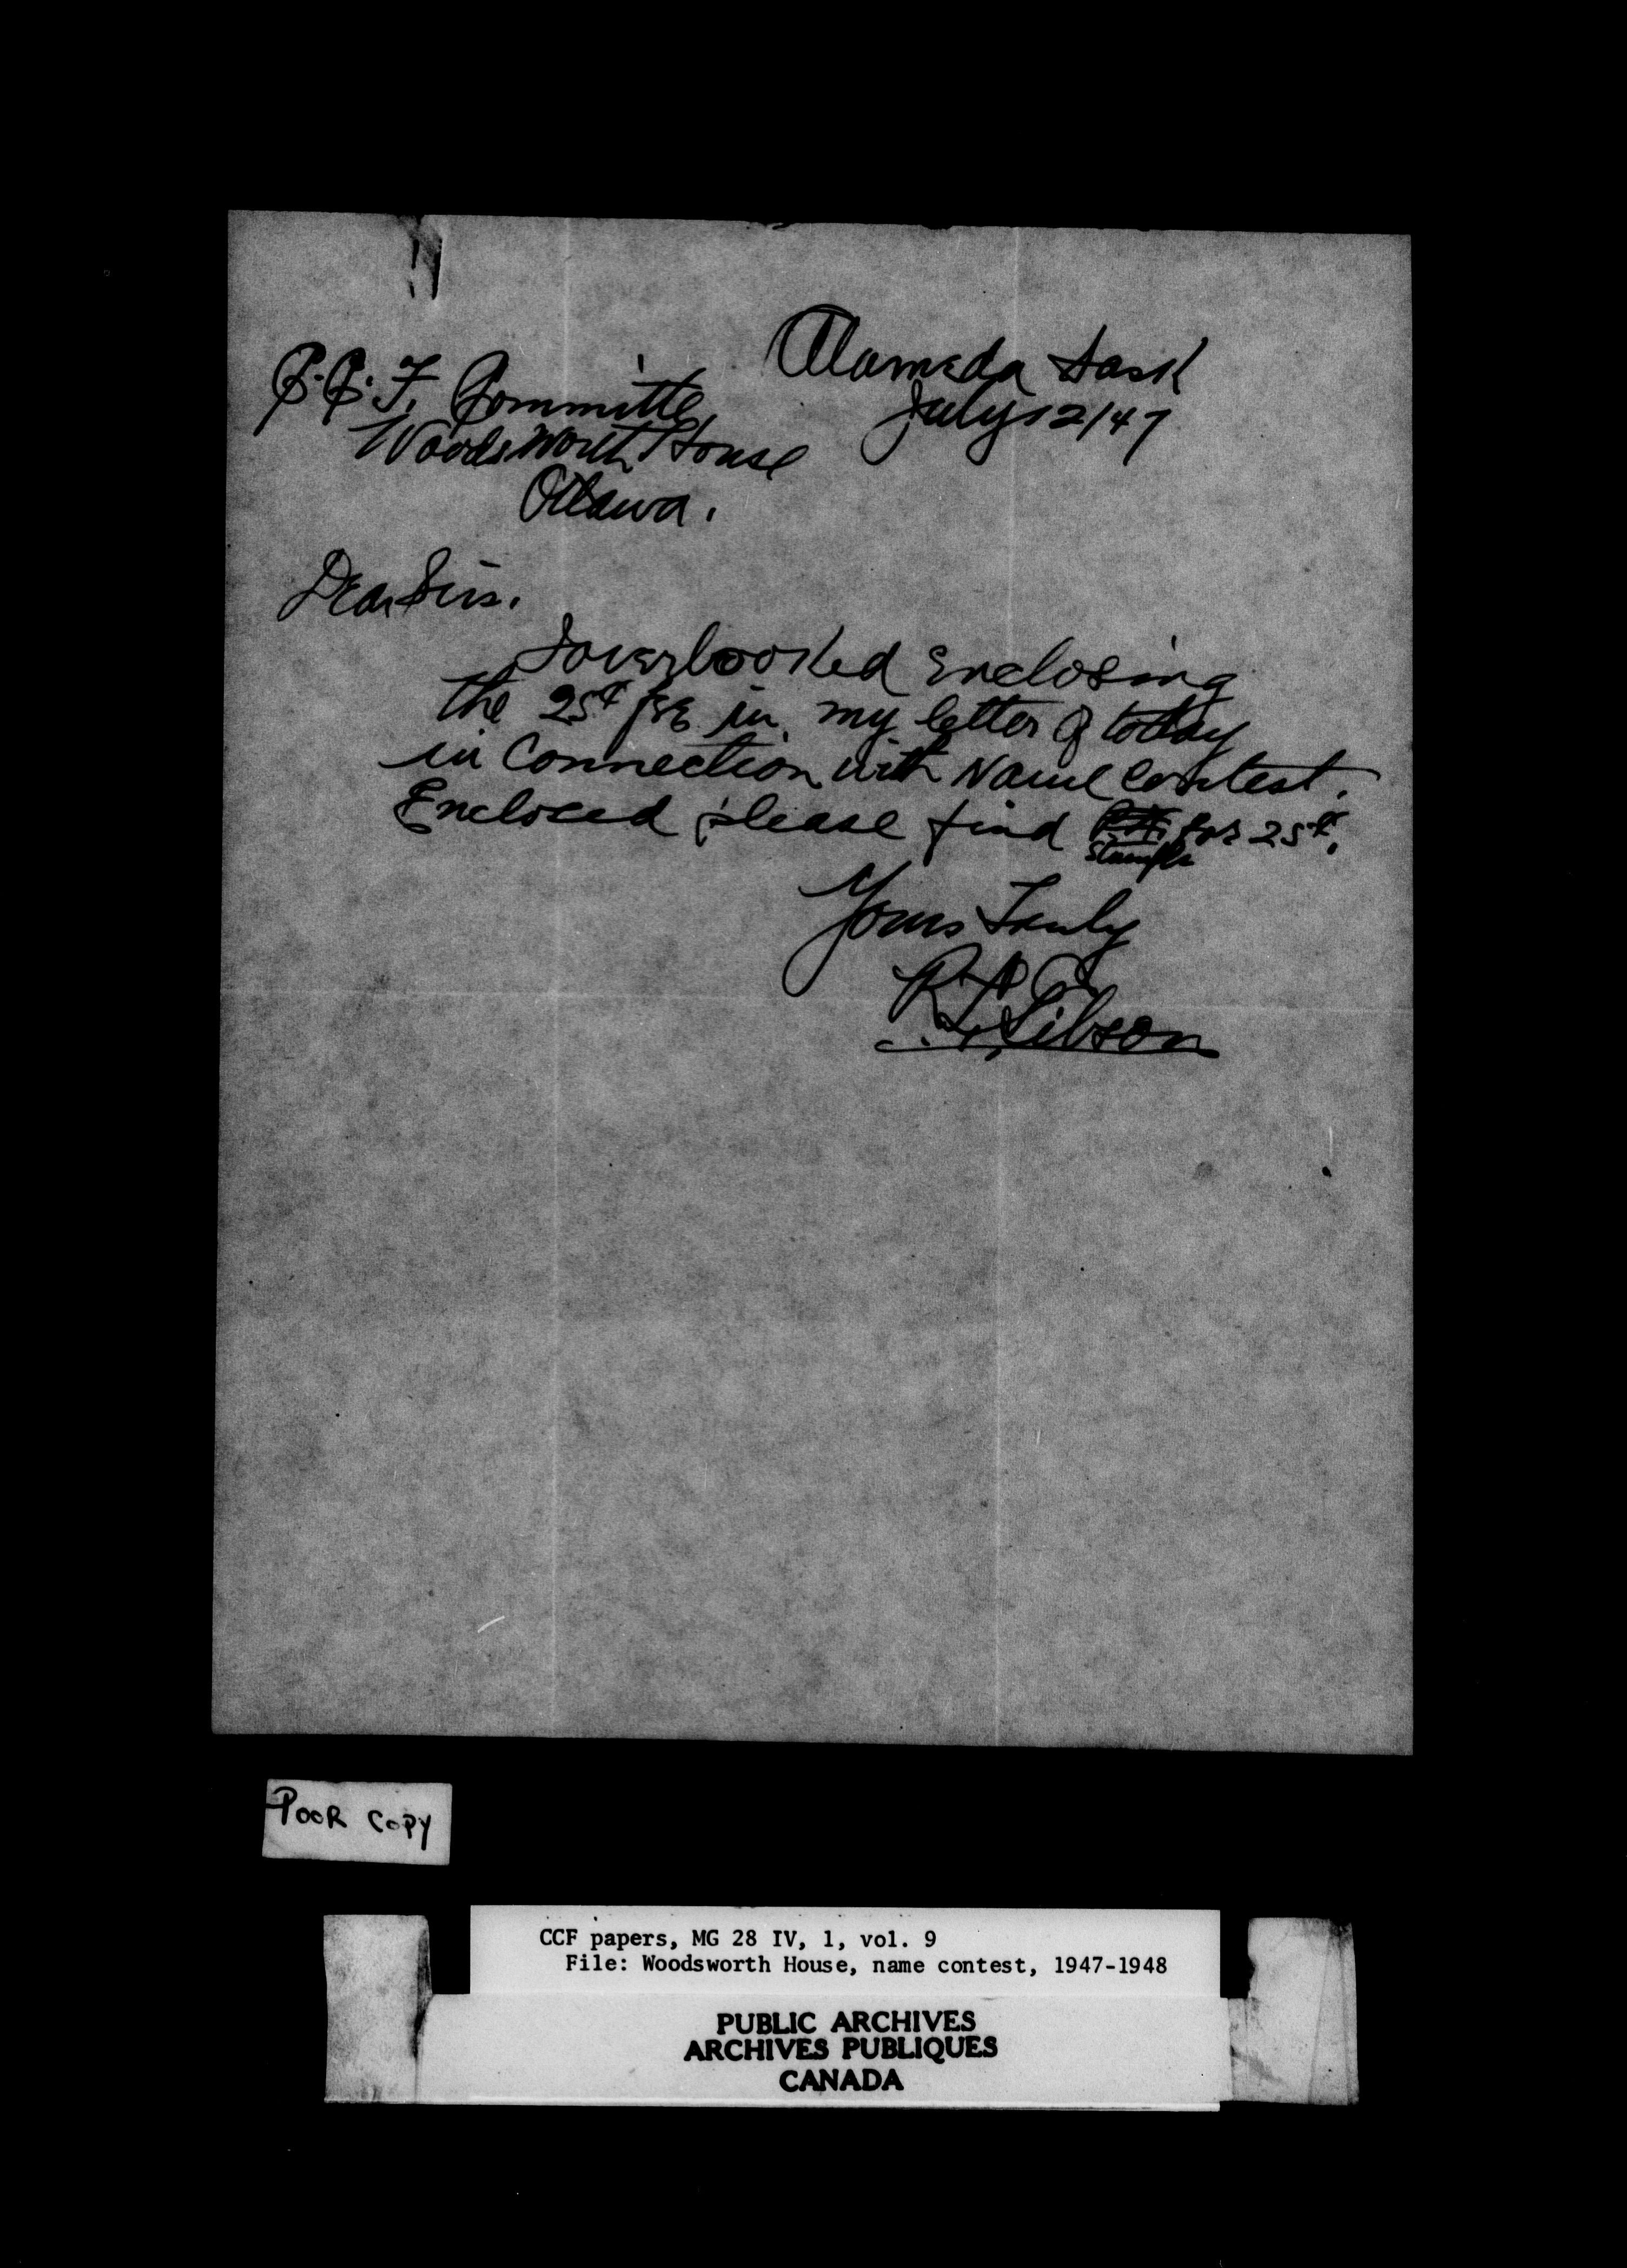 Alameda Sask
July 12/47
C.C.F. Committe
Woodsworth House
Ottawa.
Dear Sirs.
I overlooked Enclosing
the 25¢ fee in my letter of today
in Connection with Name Contest.
Enclosed please find for 25¢.
Stamps
Yours Truly
R. F. Gibson
POOR COPY
CCF papers, MG 28 IV, 1, vol. 9
File: Woodsworth House, name contest, 1947-1948
PUBLIC ARCHIVES
ARCHIVES PUBLIQUES
CANADA